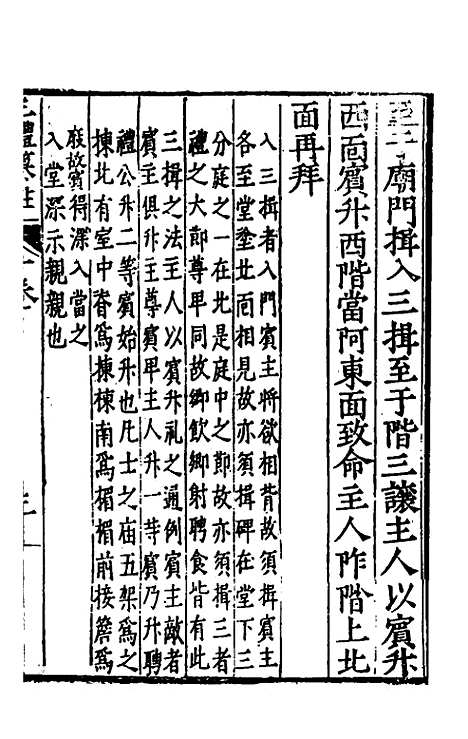 至于廟門揖入三揖至于階三讓主人以賓升
西面賓升西階當阿東面致命主人阼階上北
面再拜
入三揖者入門賓主將欲相背故須揖賓主
各至堂塗北面相見故亦須揖碑在堂下三
分庭之一在北是庭中之節故亦須揖三者
禮之大節尊卑同故鄉飲鄉射聘食皆有此
三揖之法主人以賓升礼之通例賓主敵者
賓主俱升主尊賓卑主人升一等賓乃升聘
禮公升二等賓始升也凡士之庙五架為之
棟北有室中脊為棟棟南為楣楣前接簷為
庪故賓得深入當之
入堂深示親親也